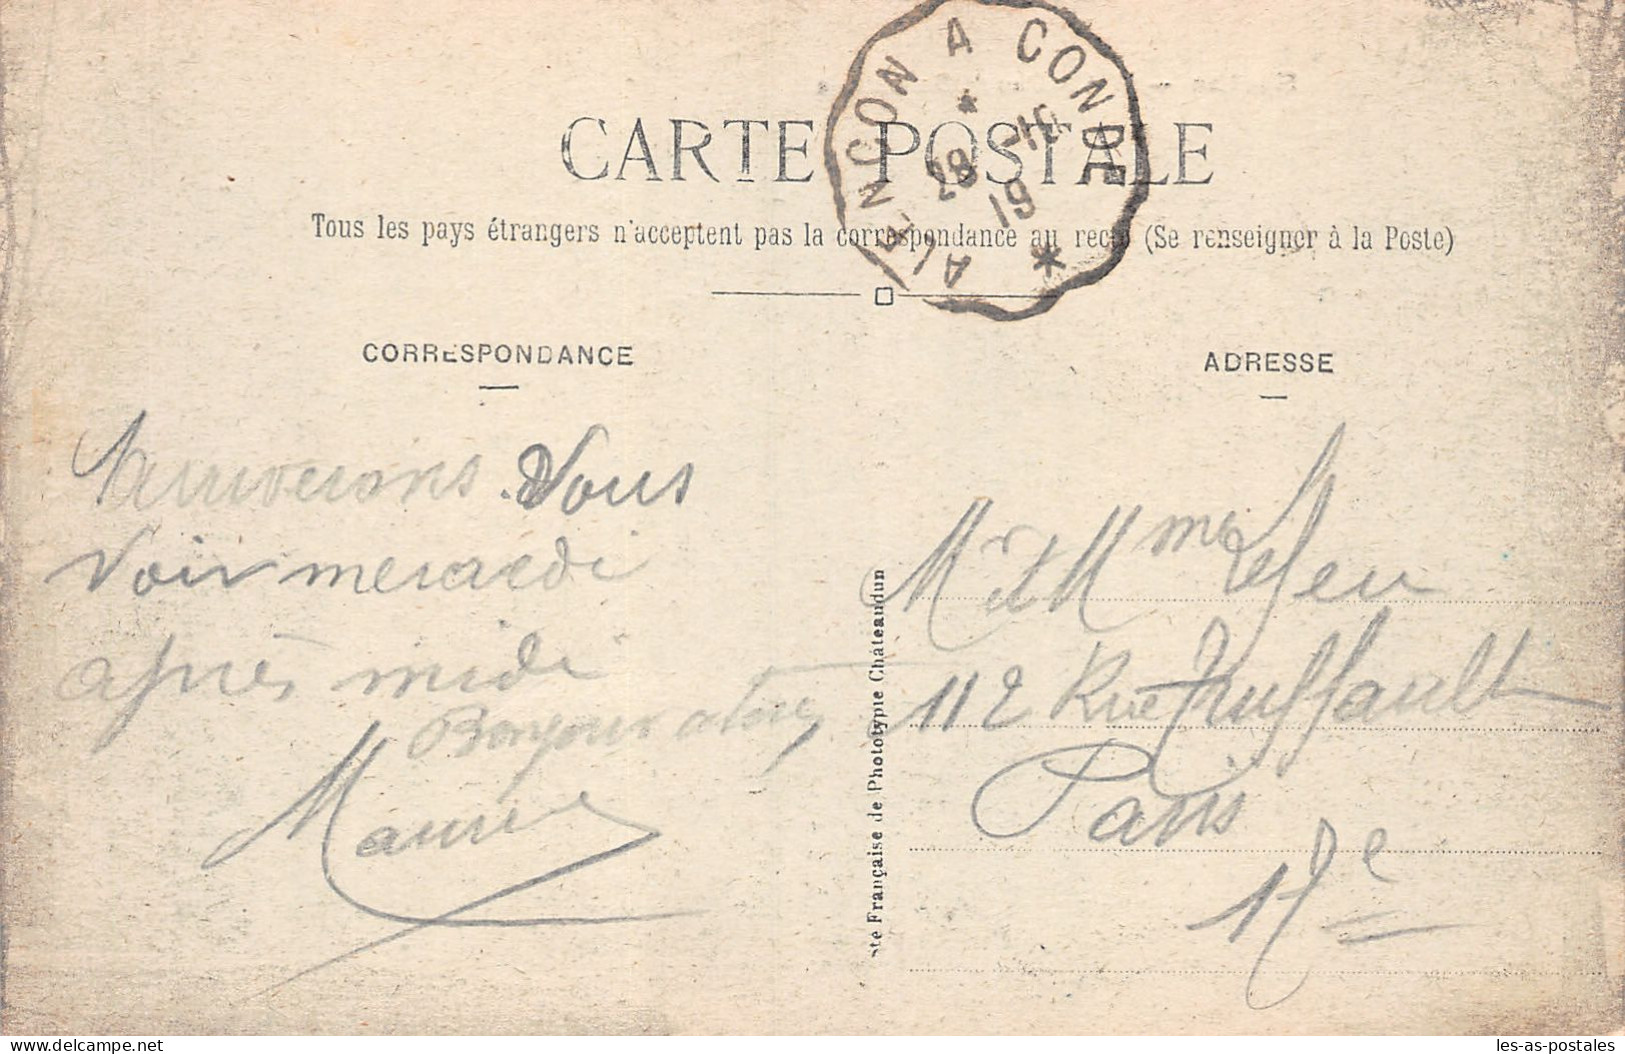 ALENCON A CONDE
28 -10
19
CARTE POSTALE
Tous les pays étrangers n'acceptent pas la correspondance au recto (Se renseigner à la Poste)
CORRESPONDANCE
arriverons Vous
voir mercredi
après midi
Bonjour a tous
Maurice
Sté Française de Phototypie Châteaudun
ADRESSE
Mr et Mme
112 Rue Truffault
Paris
17e
les-as-postales
les-as-postales.com